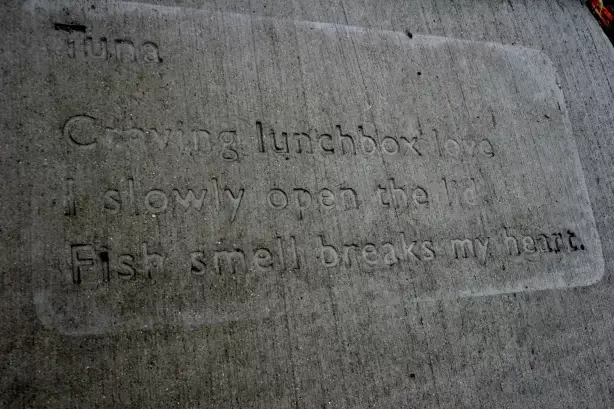 Tuna
Craving lunchbox love
I slowly open the lid
Fish smell breaks my heart.